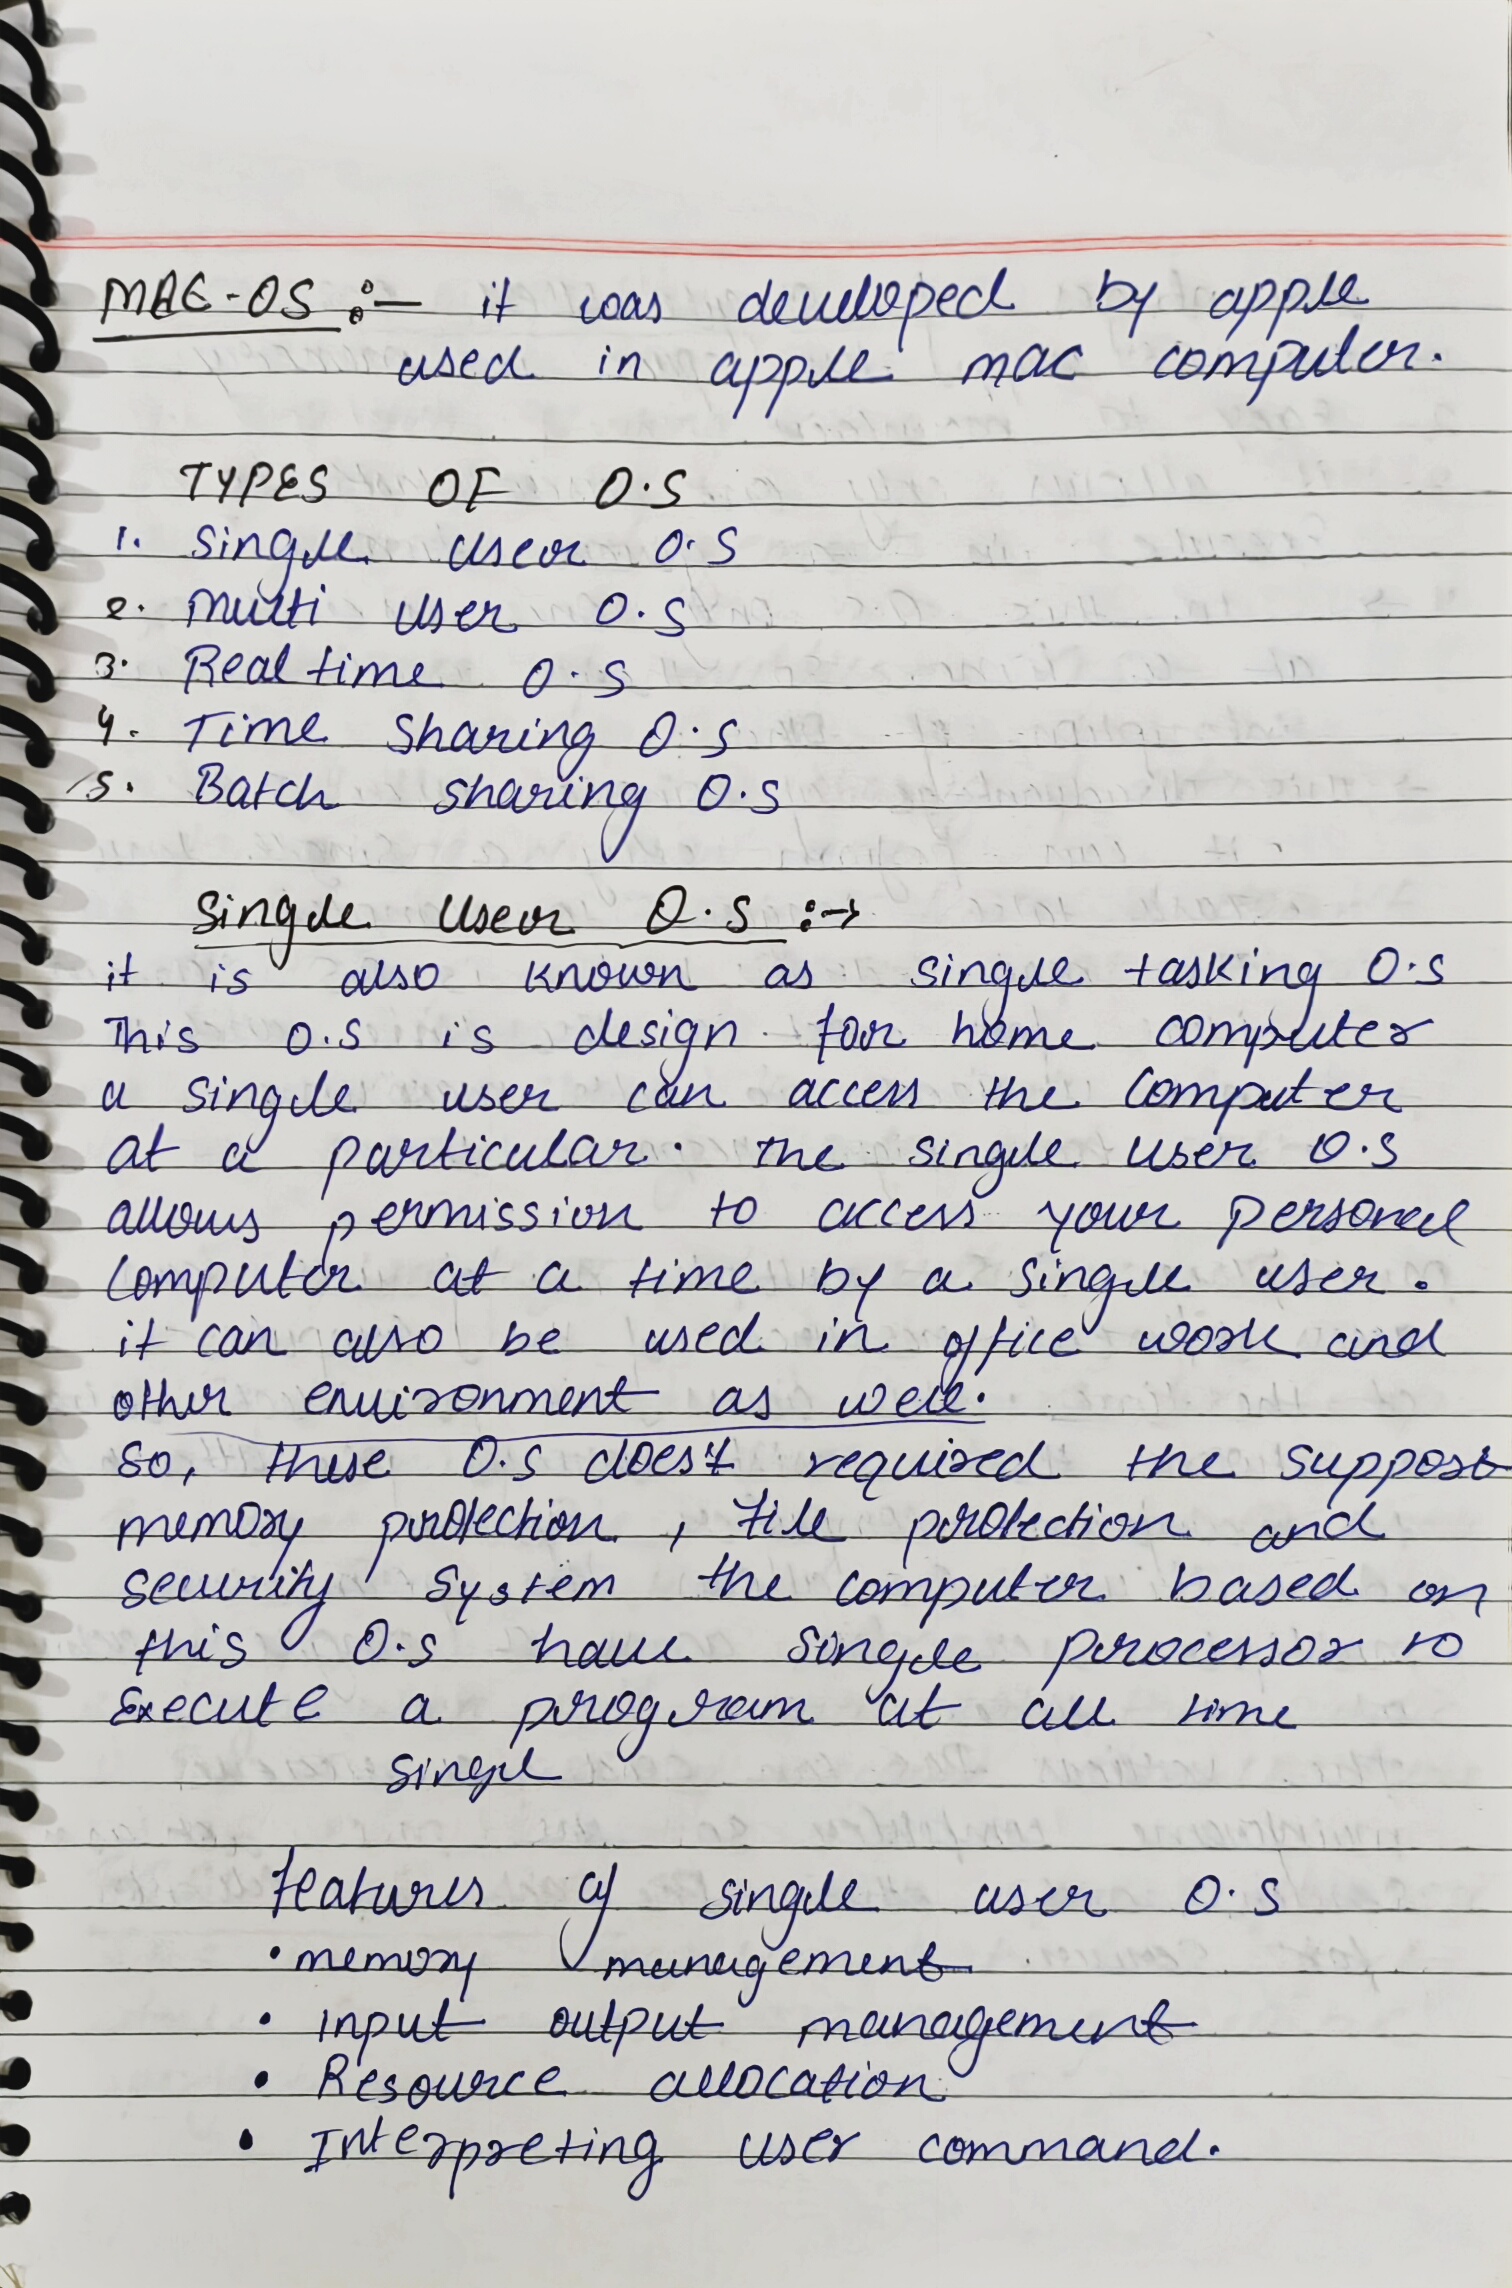 MAC-OS :- it was developed by apple
used in apple mac computer.
TYPES OF O.S
1. Single User O.S
2. Multi User O.S
3. Real time O.S
4. Time Sharing O.S
5. Batch sharing O.S
Single User O.S :→
it is also known as single tasking O.S
This O.S is design for home computer
a single user can access the computer
at a particular. The single user O.S
allows permission to access your personal
computer at a time by a single user.
it can also be used in office work and
other environment as well.
So, these O.S does't required the support
memory protection, file protection and
security system the computer based on
this O.S have single processor to
Execute a program at all time
single
Features of single user O.S
• memory management
• input output management
• Resource allocation
• Interpreting user command.